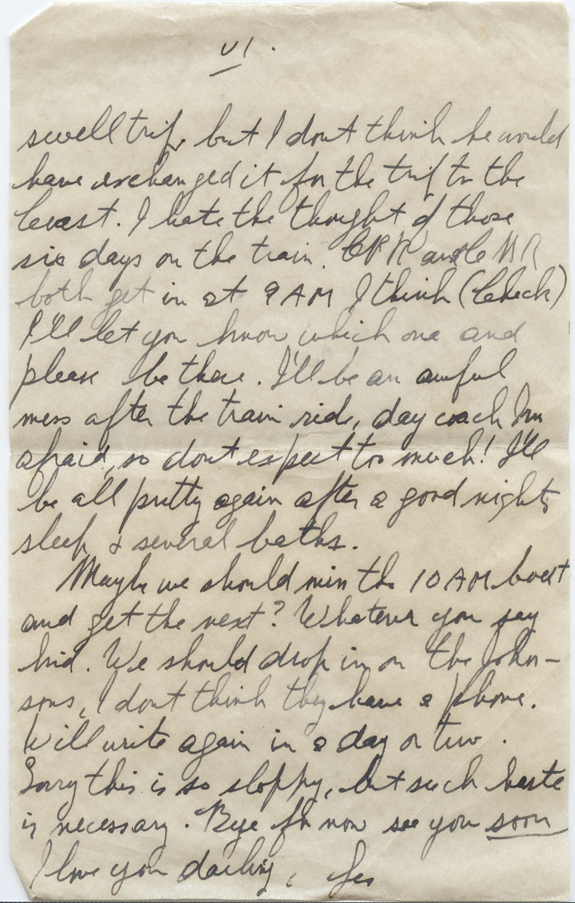 VI.
swell trip, but I dont think he would
have exchanged it for the trip to the
Coast. I hate the thought of those
six days on the train. CPR and CNR
both get in at 9 AM I think (Check)
I'll let you know which one and
please be there. I'll be an awful
mess after the train ride, day coach I'm
afraid, so dont expect too much! I'll
be all pretty again after a good nights
sleep & several baths.
Maybe we should miss the 10 AM boat
and get the next? Whatever you say
kid. We should drop in on the John-
sons, I dont think they have a phone.
Will write again in a day or two.
Sorry this is so sloppy, but such haste
is necessary. Bye for now see you soon
I love you darling,